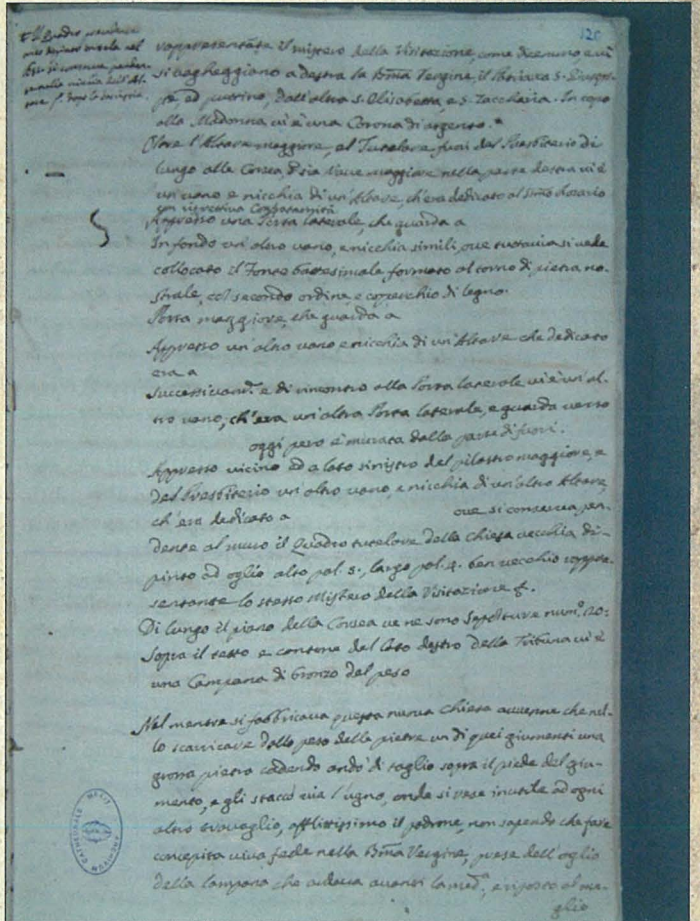 120
rappresentante il mistero della Visitazione, come dicemmo, e vi
si vagheggiano a destra la Bma Vergine, il Patriarca S. Giusep-
pe ed puttino, dall'altra S. Elisabetta, e S. Zaccharia. In capo
alla Madonna vi è una Corona di argento.*
Oltre l'Altare maggiore, al Tutelare fuori del Presbiterio di
lungo alla Corsea, o sia Nave maggiore nella parte destra vi è
un vano e nicchia di un'Altare, ch'era dedicato al Smo Rosario
con rispettiva Confraternità
Appresso una Porta laterale, che guarda a
In fondo un'altro vano, e nicchia simili, ove tuttavia si vede
collocato il Fonte battesimale formato al torno di pietra no-
strale, col secondo ordine e coperchio di legno.
Porta maggiore, che guarda a
Appresso un'altro vano e nicchia di un'Altare che dedicato
era a
Successivamte e di rincontro alla Porta laterale vi è un'al-
tro vano, ch'era un'altra Porta laterale, e guarda verso
oggi però è murata dalla parte di fuori.
Appresso vicino ed a lato sinistro del pilastro maggiore, e
del Presbiterio un'altro vano, e nicchia di un'altro Altare,
ch'era dedicato a ove si conserva pen-
dente al muro il Quadro tutelare della chiesa vecchia di-
pinto ad oglio alto pal. 5., largo pal. 4. ben vecchio rappre-
sentante lo stesso Mistero della Visitazione
Di lungo il piano della Corsea ve ne sono Sepolture num.o 20:
Sopra il tetto e cantone del lato destro della Tribuna vi è
una Campana di bronzo del peso
Nel mentre si fabbricava questa nuova chiesa avvenne che nel-
lo scarricare dallo peso delle pietre un di quei giumenti una
grossa pietra cadendo andò di taglio sopra il piede del giu-
mento, e gli staccò via l'ugno, onde si rese inutile ad ogni
altro travaglio, afflittissimo il padrone, non sapendo che fare
concepita viva fede nella Bma Vergine, prese dell'oglio
della lampana che ardeva avanti la med.a, e riposto al me-
glio